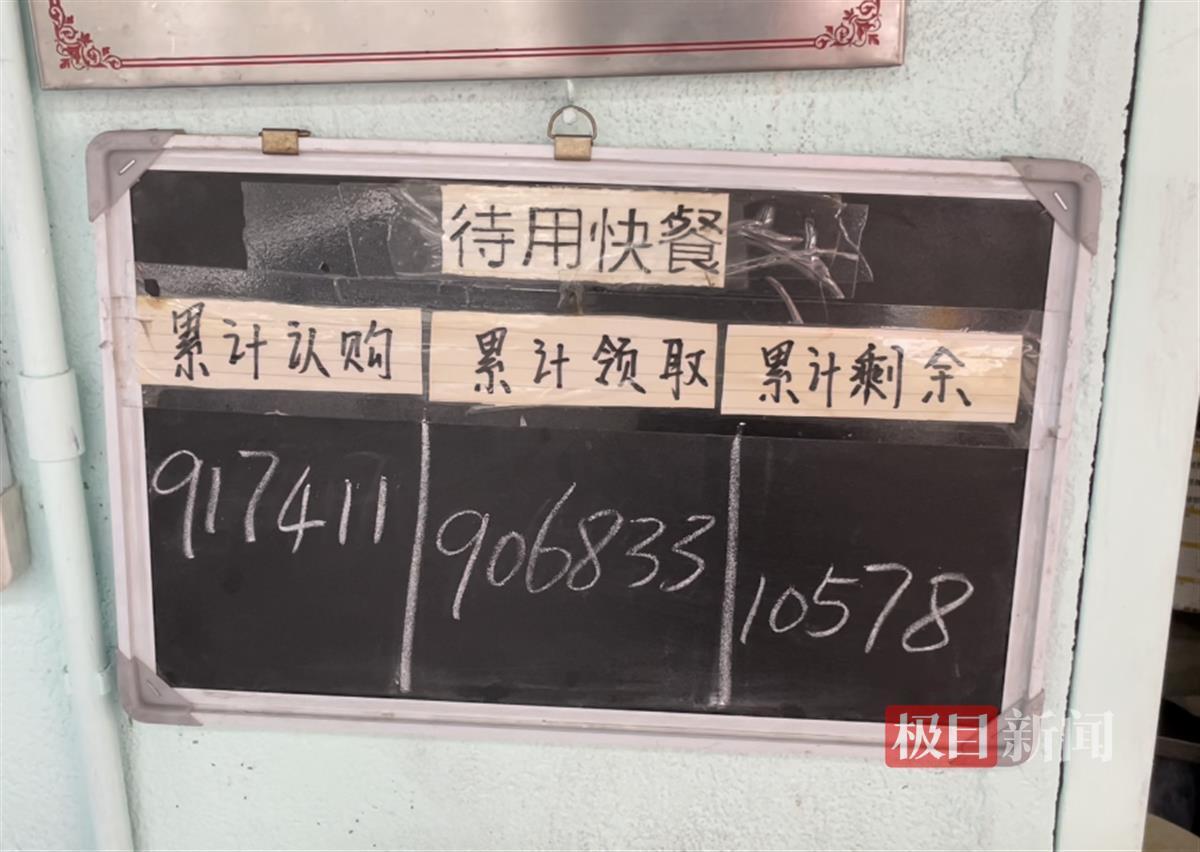 待用快餐
累计认购 累计领取 累计剩余
917411 906833 10578
极目新闻